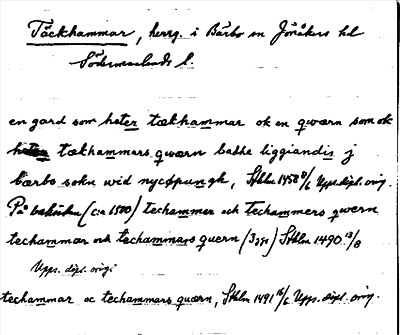 Täckhammar, herrg. i Bärbo sn Jönåkers hd
Södermanlands l.
en gard som heter tækhammar ok en qwærn som ok
heter tækhammars qwærn bathe liggiandis j
bærbo sokn wid nycøpungh, Sthlm 1458 8/6 Upps. dipl. orig.
På baksidan (ca 1500) techammar och techammers qwern
techammar och techammars quern (3 ggr) Sthlm 1490 13/8
Upps. dipl. orig.
techammar oc techammars quærn, Sthlm 1491 16/6 Upps. dipl. orig.